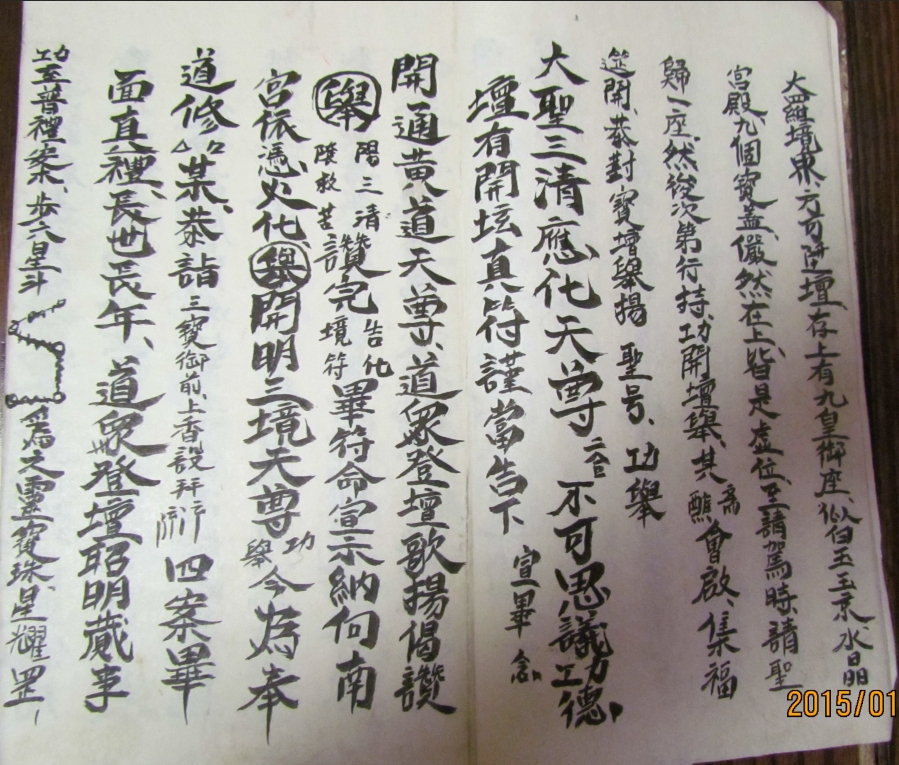 大羅境東、方前陞壇、存上有九皇御座、似白玉玉京水晶
宮殿、九個寶蓋、儼然在上、皆是虛位、至請駕時、請聖
歸一座、然後次第行持、功開壇舉、其齋醮會啟、集福
筵開、恭對寶壇、舉揚 聖号、功舉
大聖三清應化天尊 二合 不可思議功德
壇有開坛真符謹當告下 宣畢 念
開通黃道天尊、道眾登壇歌揚偈讚
舉 陽三清 陰救苦 讚完 告化境符 畢符命宣示納何南
宮依憑火化 舉 開明三境天尊 功舉 今為奉
道修 某、恭詣 三寶御前、上香設拜 四案畢
面真禮、長世長年、道眾登壇昭明蕆事
功至普禮案、步六星斗 為文靈寶珠、星耀罡
2015/01